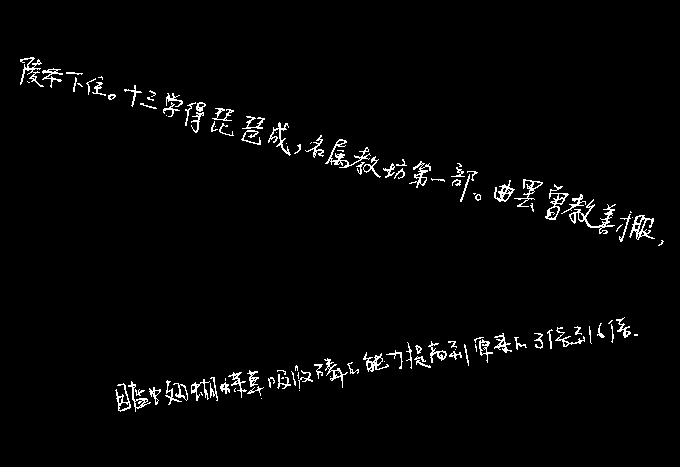 陵下住。十三学得琵琶成，名属教坊第一部。曲罢曾教善服，
蝴蝶草吸收磷的能力提高到原来的3倍到6倍.